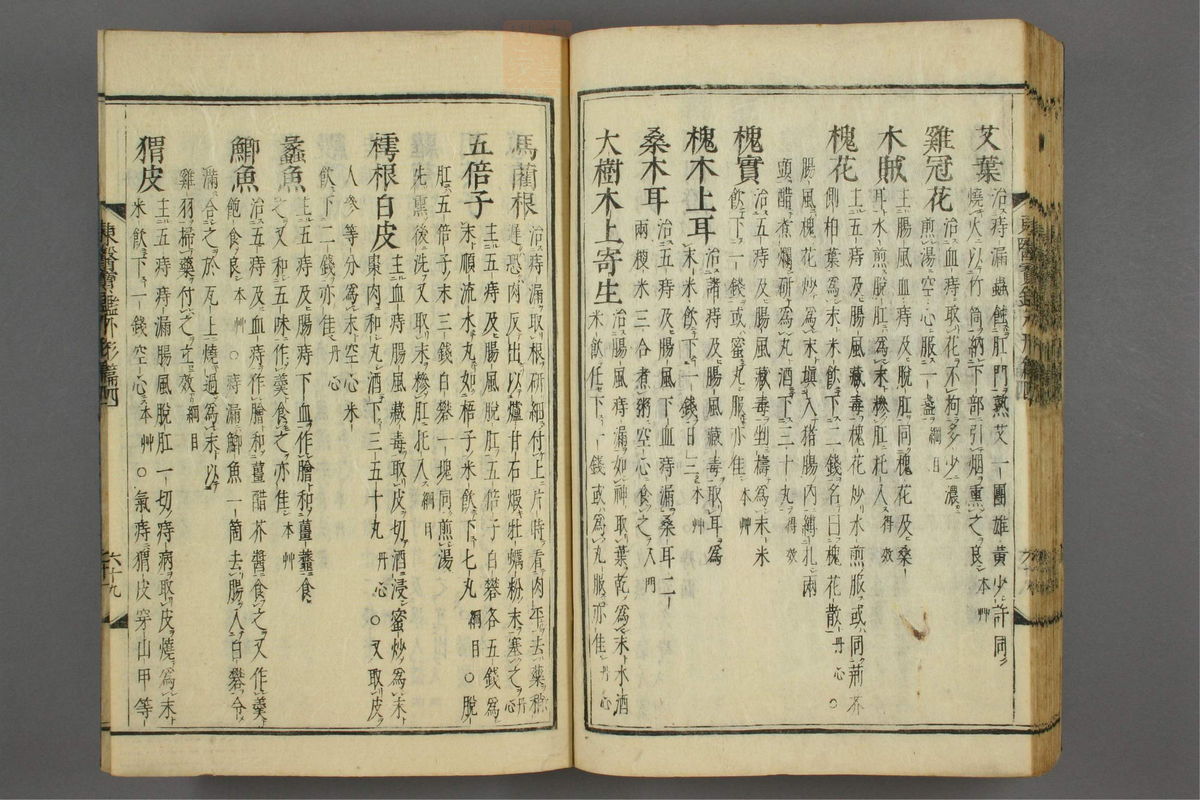 艾葉 治痔漏蟲蝕肛門熟艾一團雄黃少許同
燒火以竹筒納下部引烟熏之良本艸
雞冠花 治血痔取花不拘多少濃
煎湯空心服一盞綱目
木賊 主腸風血痔及脫肛同槐花及桑
耳水煎服脫肛爲末糝肛托入得效
槐花 主五痔及腸風藏毒槐花炒水煎服或同荊芥
側柏葉爲末米飲下二錢名曰槐花散丹心○
腸風槐花炒爲末塡入猪腸內縛扎兩
頭醋煮爛研爲丸酒下三十丸得效
槐實 治五痔及腸風藏毒剉擣爲末米
飲下一錢或蜜丸服亦佳本艸
槐木上耳 治諸痔及腸風藏毒取耳爲
末米飲下一錢日三本艸
桑木耳 治五痔及腸風下血痔漏桑耳二
兩粳米三合煮粥空心食之入門
大樹木上寄生 治腸風痔漏如神取葉乾爲末水酒
米飲任下一錢或爲丸服亦佳丹心
馬藺根 治痔漏取根研細付上片時看肉平去藥稍
遲恐肉反出以爐甘石煆牡蠣粉末塞之丹心
五倍子 主五痔及腸風脫肛五倍子白礬各五錢爲
末順流水丸如梧子米飲下七丸綱目○脫
肛五倍子末三錢白礬一塊同煎湯
先熏後洗又取末糝肛托入綱目
樗根白皮 主血痔腸風藏毒取皮切酒浸蜜炒爲末
棗肉和丸酒下三五十丸丹心○又取皮
人參等分爲末空心米
飮下二錢亦佳丹心
蠡魚 主五痔及腸痔下血作膾和薑虀食
之又和五味作羹食之亦佳本艸
鯽魚 治五痔及血痔作膾和薑醋芥醬食之又作羹
飽食良本艸○痔漏鯽魚一箇去腸入白礬令
滿合之於瓦上燒過爲末以
雞羽掃藥付之效綱目
猬皮 主五痔痔漏腸風脫肛一切痔病取皮燒爲末
米飲下一錢空心本艸○氣痔猬皮穿山甲等
東醫寶鑑外形篇四
六十九